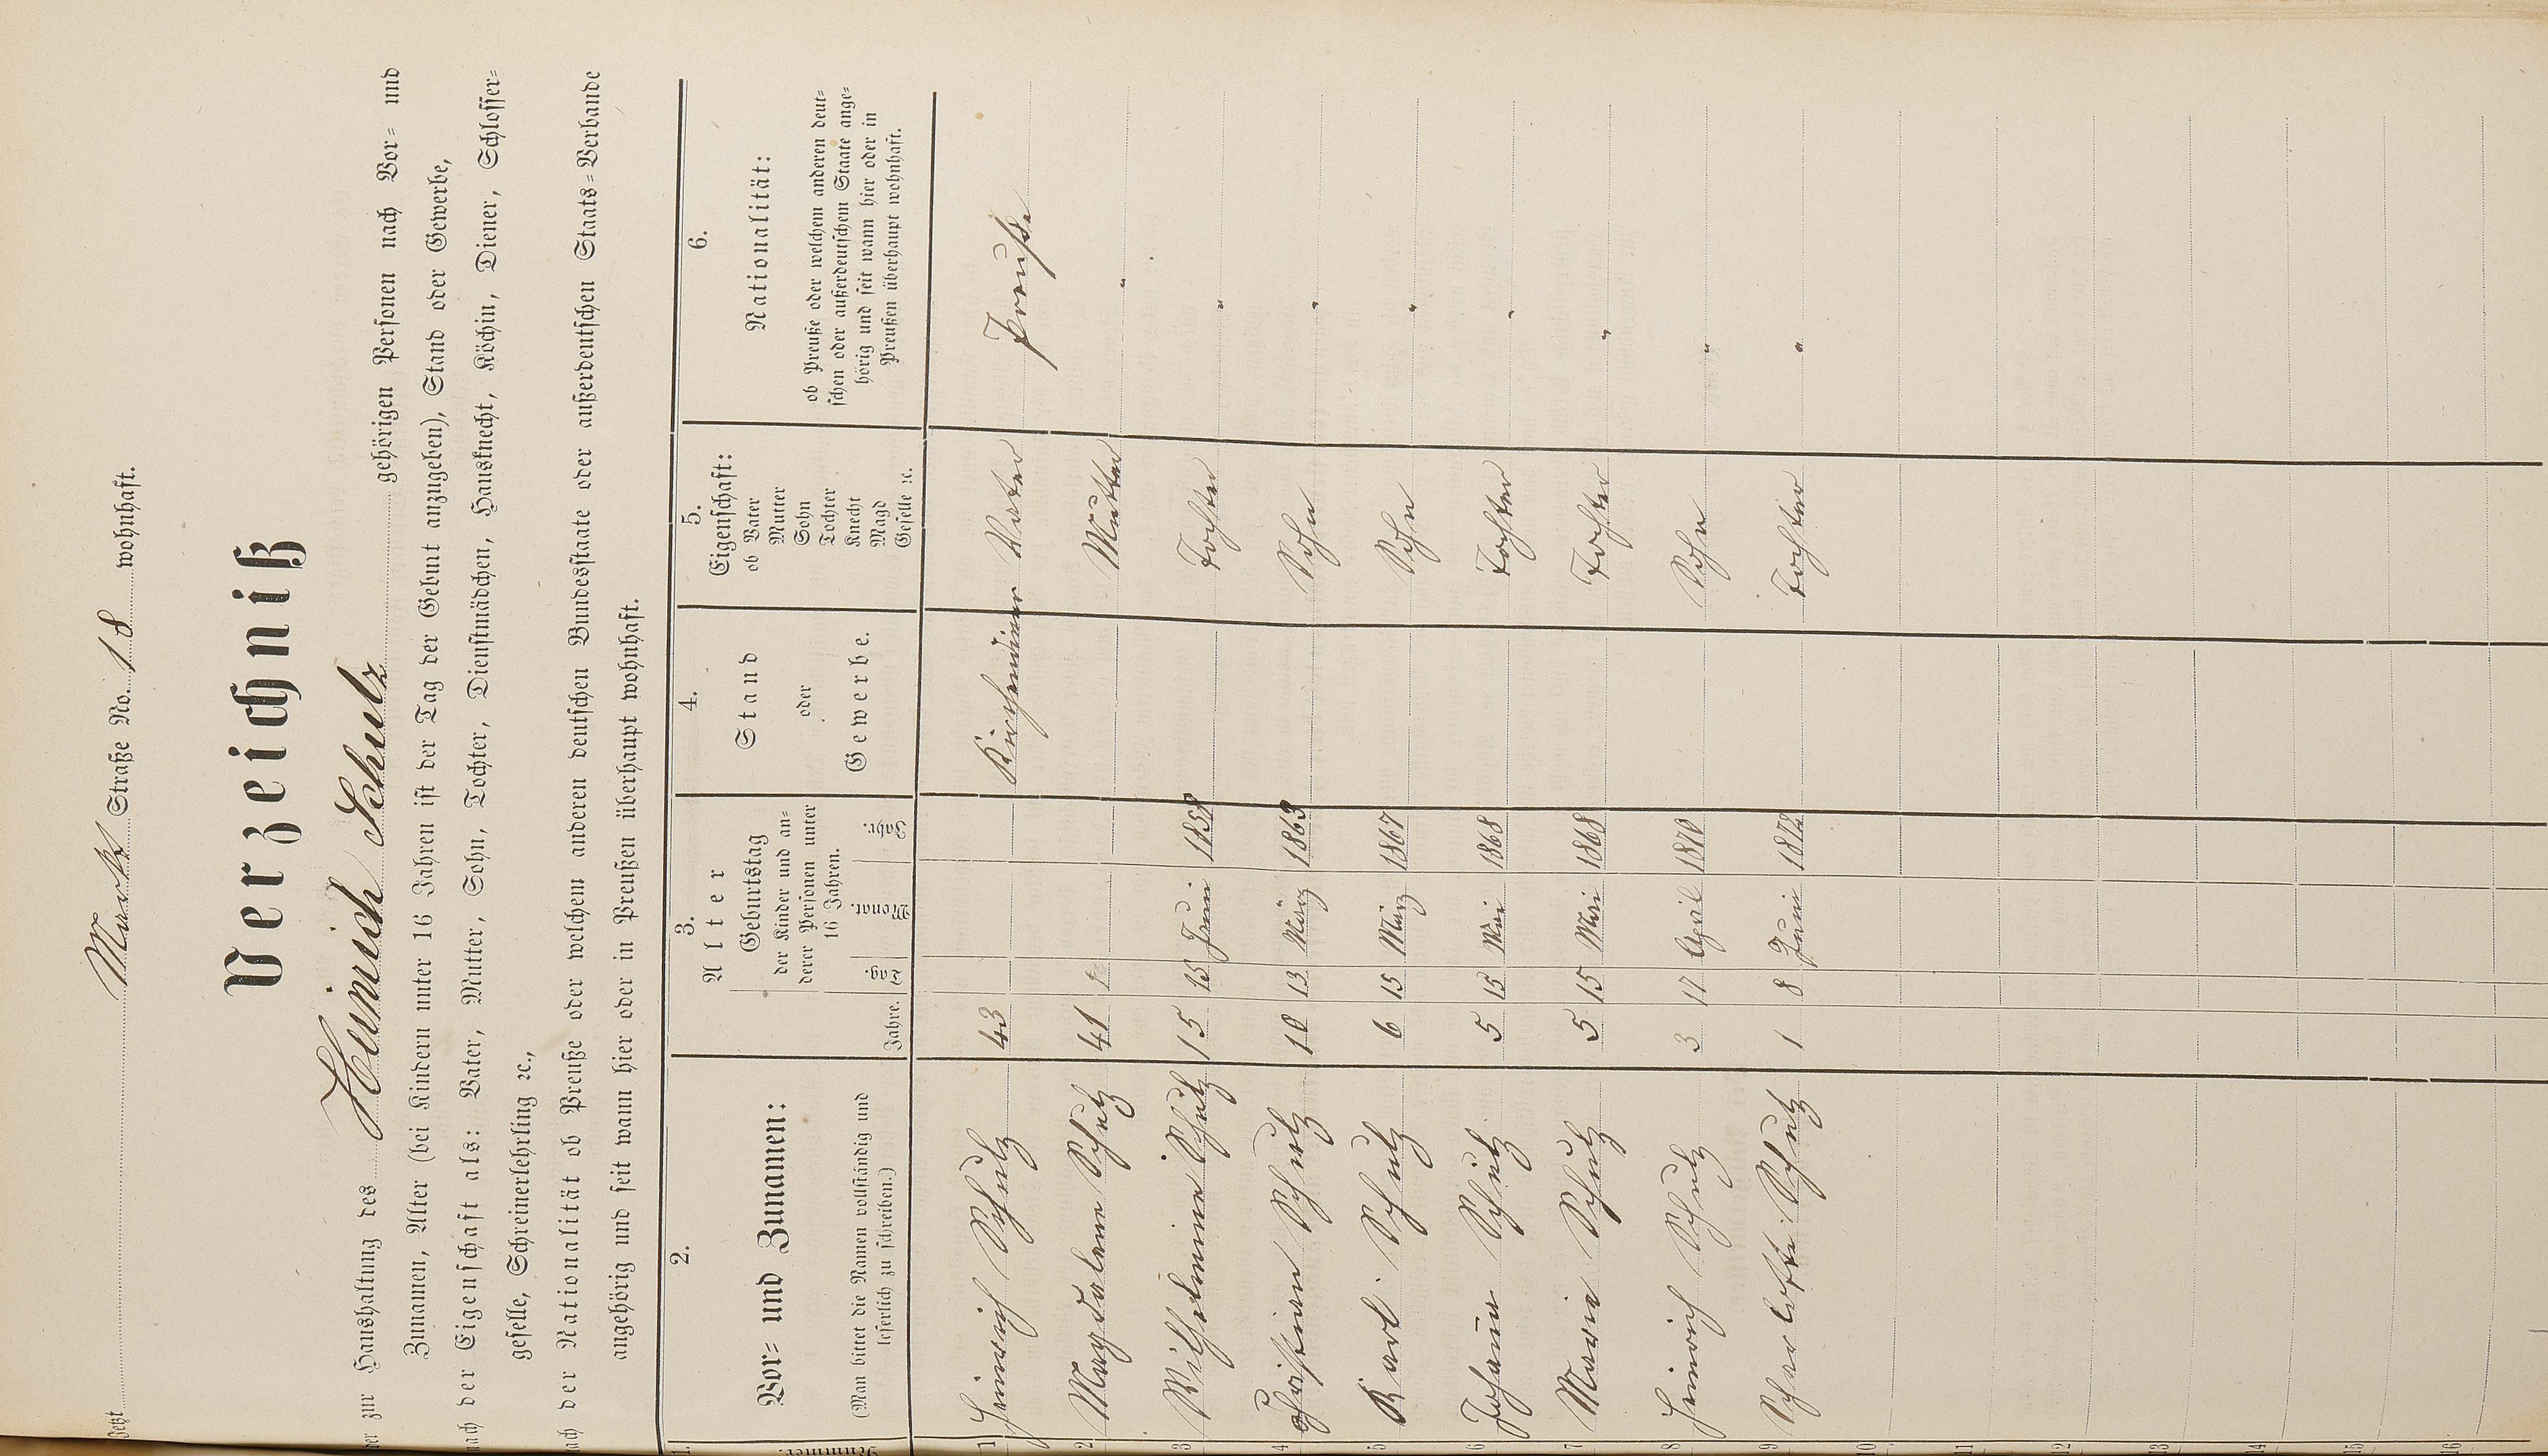 Jetzt Markt Straße No. 18 wohnhaft.
Verzeichniß
der zur Haushaltung des Heinrich Schulz gehörigen Personen nach Vor- und
Zunamen, Alter (bei Kindern unter 16 Jahren ist der Tag der Geburt anzugeben), Stand oder Gewerbe,
nach der Eigenschaft als: Vater, Mutter, Sohn, Tochter, Dienstmädchen, Hausknecht, Köchin, Diener, Schlosser-
geselle, Schreinerlehrling ꝛc.,
nach der Nationalität ob Preuße oder welchem anderen deutschen Bundesstaate oder außerdeutschen Staats-Verbande
angehörig und seit wann hier oder in Preußen überhaupt wohnhaft.
1. 2. 3. 4. 5. 6.
Nummer.
Vor- und Zunamen:
(Man bittet die Namen vollständig und
leserlich zu schreiben.)
Alter
Jahre.
Geburtstag
der Kinder und an-
derer Personen unter
16 Jahren.
Tag. Monat. Jahr.
Stand
oder
Gewerbe.
Eigenschaft:
ob Vater
Mutter
Sohn
Tochter
Knecht
Magd
Geselle ꝛc.
Nationalität:
ob Preuße oder welchem anderen deut-
schen oder außerdeutschem Staate ange-
hörig und seit wann hier oder in
Preußen überhaupt wohnhaft.
1 Heinrich Schulz 43 Kirchendiener Vater Preuße
2 Magdalene Schulz 41 Mutter "
3 Wilhelmine Schulz 15 15 Juni 1858 Tochter "
4 Christian Schulz 10 13 März 1863 Sohn "
5 Karl Schulz 6 15 März 1867 Sohn "
6 Johanna Schulz 5 15 Mai 1868 Tochter "
7 Marie Schulz 5 15 Mai 1868 Tochter "
8 Heinrich Schulz 3 17 April 1870 Sohn "
9 Scharlotte Schulz 1 8 Juni 1872 Tochter "
10
11
12
13
14
15
16